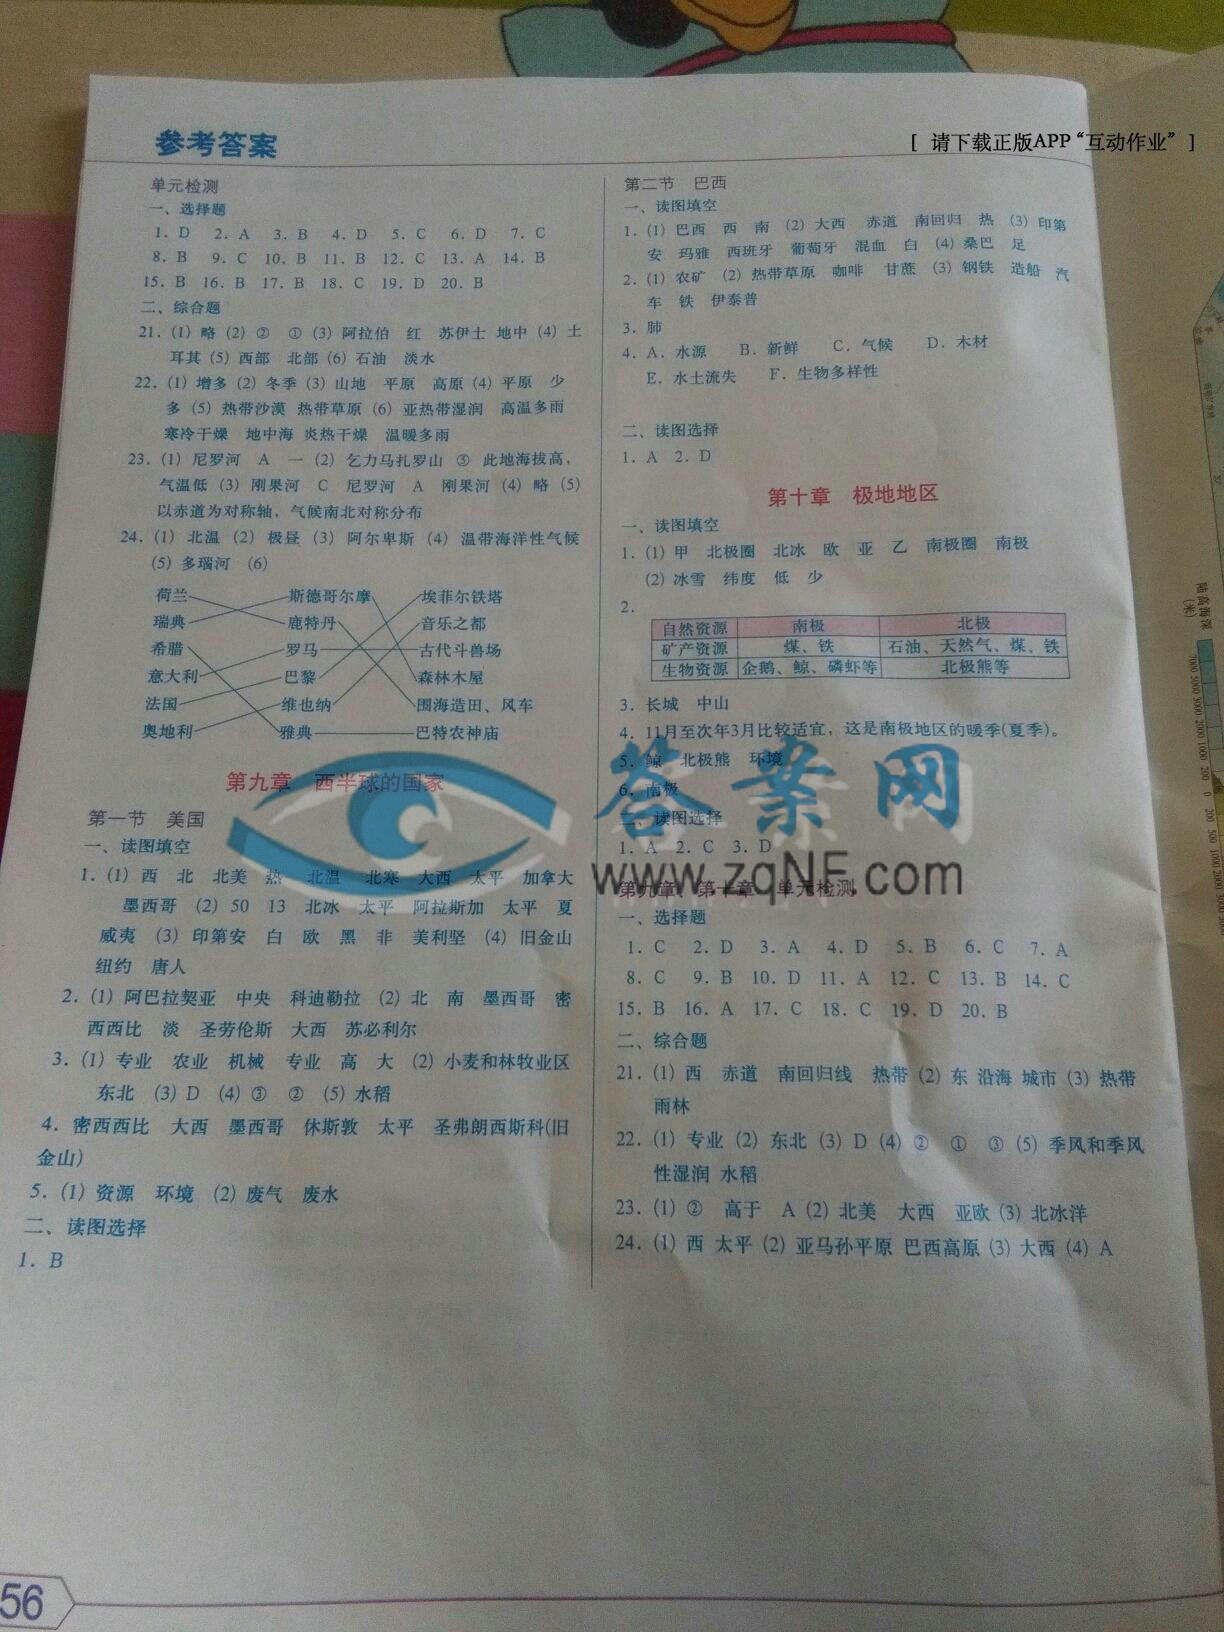 参考答案
[ 请下载正版APP“互动作业” ]
单元检测
一、选择题
1. D 2. A 3. B 4. D 5. C 6. D 7. C
8. B 9. C 10. B 11. B 12. C 13. A 14. B
15. B 16. B 17. B 18. C 19. D 20. B
二、综合题
21. (1) 略 (2) ② ① (3) 阿拉伯 红 苏伊士 地中 (4) 土
耳其 (5) 西部 北部 (6) 石油 淡水
22. (1) 增多 (2) 冬季 (3) 山地 平原 高原 (4) 平原 少
多 (5) 热带沙漠 热带草原 (6) 亚热带湿润 高温多雨
寒冷干燥 地中海 炎热干燥 温暖多雨
23. (1) 尼罗河 A 一 (2) 乞力马扎罗山 ③ 此地海拔高,
气温低 (3) 刚果河 C 尼罗河 A 刚果河 (4) 略 (5)
以赤道为对称轴，气候南北对称分布
24. (1) 北温 (2) 极昼 (3) 阿尔卑斯 (4) 温带海洋性气候
(5) 多瑙河 (6)
荷兰 斯德哥尔摩 埃菲尔铁塔
瑞典 鹿特丹 音乐之都
希腊 罗马 古代斗兽场
意大利 巴黎 森林木屋
法国 维也纳 围海造田、风车
奥地利 雅典 巴特农神庙
第九章 西半球的国家
第一节 美国
一、读图填空
1. (1) 西 北 北美 热 北温 北寒 大西 太平 加拿大
墨西哥 (2) 50 13 北冰 太平 阿拉斯加 太平 夏
威夷 (3) 印第安 白 欧 黑 非 美利坚 (4) 旧金山
纽约 唐人
2. (1) 阿巴拉契亚 中央 科迪勒拉 (2) 北 南 墨西哥 密
西西比 淡 圣劳伦斯 大西 苏必利尔
3. (1) 专业 农业 机械 专业 高 大 (2) 小麦和林牧业区
东北 (3) D (4) ③ ② (5) 水稻
4. 密西西比 大西 墨西哥 休斯敦 太平 圣弗朗西斯科(旧
金山)
5. (1) 资源 环境 (2) 废气 废水
二、读图选择
1. B
第二节 巴西
一、读图填空
1. (1) 巴西 西 南 (2) 大西 赤道 南回归 热 (3) 印第
安 玛雅 西班牙 葡萄牙 混血 白 (4) 桑巴 足
2. (1) 农矿 (2) 热带草原 咖啡 甘蔗 (3) 钢铁 造船 汽
车 铁 伊泰普
3. 肺
4. A. 水源 B. 新鲜 C. 气候 D. 木材
E. 水土流失 F. 生物多样性
二、读图选择
1. A 2. D
第十章 极地地区
一、读图填空
1. (1) 甲 北极圈 北冰 欧 亚 乙 南极圈 南极
(2) 冰雪 纬度 低 少
2.
自然资源 南极 北极
矿产资源 煤、铁 石油、天然气、煤、铁
生物资源 企鹅、鲸、磷虾等 北极熊等
3. 长城 中山
4. 11月至次年3月比较适宜，这是南极地区的暖季(夏季)。
5. 鲸 北极熊 环境
6. 南极
二、读图选择
1. A 2. C 3. D
答案网
www.zqNF.com
第九章、第十章 单元检测
一、选择题
1. C 2. D 3. A 4. D 5. B 6. C 7. A
8. C 9. B 10. D 11. A 12. C 13. B 14. C
15. B 16. A 17. C 18. C 19. D 20. B
二、综合题
21. (1) 西 赤道 南回归线 热带 (2) 东 沿海 城市 (3) 热带
雨林
22. (1) 专业 (2) 东北 (3) D (4) ② ① ③ (5) 季风和季风
性湿润 水稻
23. (1) ② 高于 A (2) 北美 大西 亚欧 (3) 北冰洋
24. (1) 西 太平 (2) 亚马孙平原 巴西高原 (3) 大西 (4) A
56